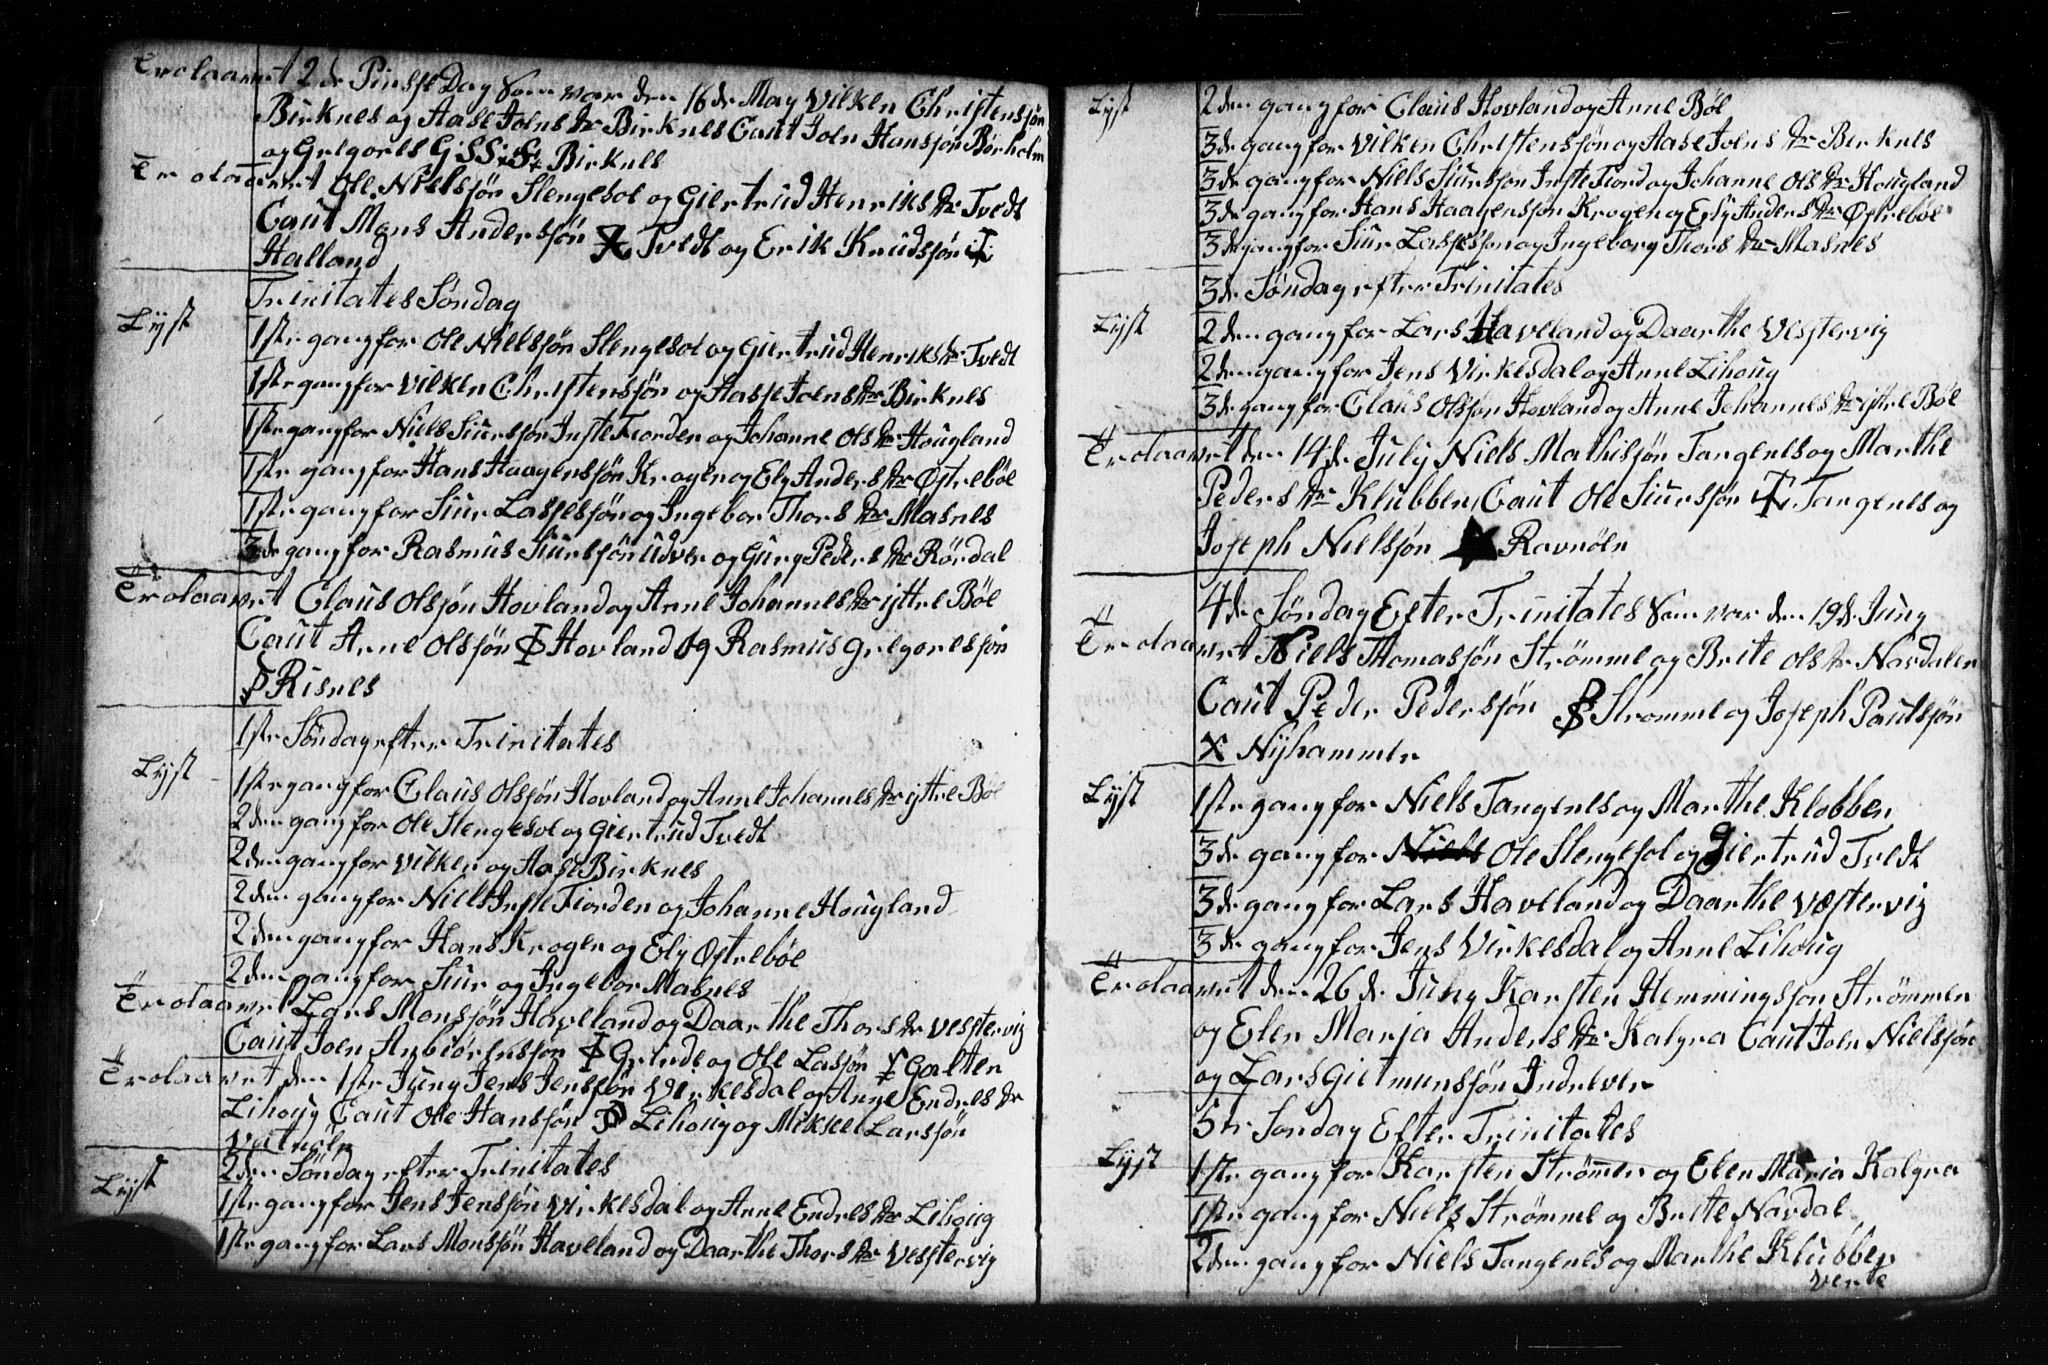 Trolaavet 2de Pinsse Dag Som var den 16de May Vilken Christensøn
Birknes og Aase Joens dr Birknes Caut Joen Hansøn Børholm
og Gregorius G S S S Birknes
Trolaavet Ole Nielsøn Slengesol og Giertrud Henriks dr Tvedt
Caut Mons Andersøn Tvedt og Erik Knudsøn
Halland
Trinitates Søndag
Lyst 1ste gang for Ole Nielsøn Slengesol og Giertrud Henriks dr Tvedt
1ste gang for Vilken Christensøn og Aasse Joens dr Birknes
1ste gang for Niels Siursøn Inste Fiorden og Johanne Ols dr Hougland
1ste gang for Hans Haagensøn Krogen og Ely Anders dr Østrebøe
1ste gang for Siur Lassesøn og Ingebor Thors dr Masnes
3de gang for Rasmus Siursøn Udven og Gurg Peders dr Rørdal
Trolaavet Claus Olsøn Hovland og Anne Johannes dr ystre Bøe
Caut Arne Olsøn Hovland og Rasmus Gregoresøn
Risnes
1ste Søndag efter Trinitates
Lyst 1ste gang for Claus Olsøn Hovland og Anne Johannes dr yttre Bøe
2den gang for Ole Slengesol og Giertrud Tvedt
2den gang for Vilken og Aase Birknes
2den gang for Niels Inste Fiorden og Johanne Hougland
2den gang for Hans Krogen og Ely Østrebøe
2den gang for Siur og Ingebor Masnes
Trolaavet Lars Monsøn Haveland og Daarthe Thors dr Vestervig
Caut Joen Anbiørensøn Grinde og Ole Lasøn Galten
Trolaavet den 1ste Juny Jens Jensøn Virkesdal og Anne Endres dr
Lihoug Caut Ole Hansøn Lihoug og Miksel Larsøn
Vatnøen
2den Søndag efter Trinitates
Lyst 1ste gang for Jens Jensøn Virkesdal og Anne Endres dr Lihoug
1ste gang for Lars Monsøn Haveland og Daarthe Thors dr Vestervig
Lyst 2den gang for Claus Hovland og Anne Bøe
3de gang for Vilken Christensøn og Aase Joens dr Birknes
3de gang for Niels Siursøn Inste Fiord og Johanne Ols dr Hougland
3de gang for Hans Haagensøn Krogen og Ely Anders dr Østrebøe
3de gang for Siur Lassesøn og Ingeborg Thors dr Masnes
3de Søndag efter Trinitates
Lyst 2den gang for Lars Haveland og Daarthe Vestervig
2den gang for Jens Virkesdal og Anne Lihoug
3de gang for Claus Olsøn Hovland og Anne Johannes dr ystre Bøe
Trolaavet den 14de July Niels Mathisøn Tangenes og Marthe
Peders dr Klubben Caut Ole Siursøn Tangenes og
Joseph Nielsøn Ravnøen
4de Søndag Efter Trinitates Som var den 19de Juny
Trolaavet Niels Thomasøn Strømme og Brite Ols dr Navdalen
Caut Peder Pedersøn Stromme og Joseph Paulsøn
X Nyhammer
Lyst 1ste gang for Niels Tangenes og Marthe Klobben
3de gang for Ole Slengesol og Giertrud Tvedt
3de gang for Lars Haveland og Daarthe Væstervig
3de gang for Jens Virkesdal og Anne Lihoug
Trolaavet den 26de Juny Karsten Hemmingsøn Strømmen
og Elen Marja Anders dr Kalgra Caut Joen Nielsøn
og Lars Gietmunsøn Indreven
5te Søndag Efter Trinitates
Lyst 1ste gang for Karsten Strømmen og Elen Maria Kalgra
1ste gang for Niels Strømme og Brite Navdal
2den gang for Niels Tangenes og Marthe Klubben
verte